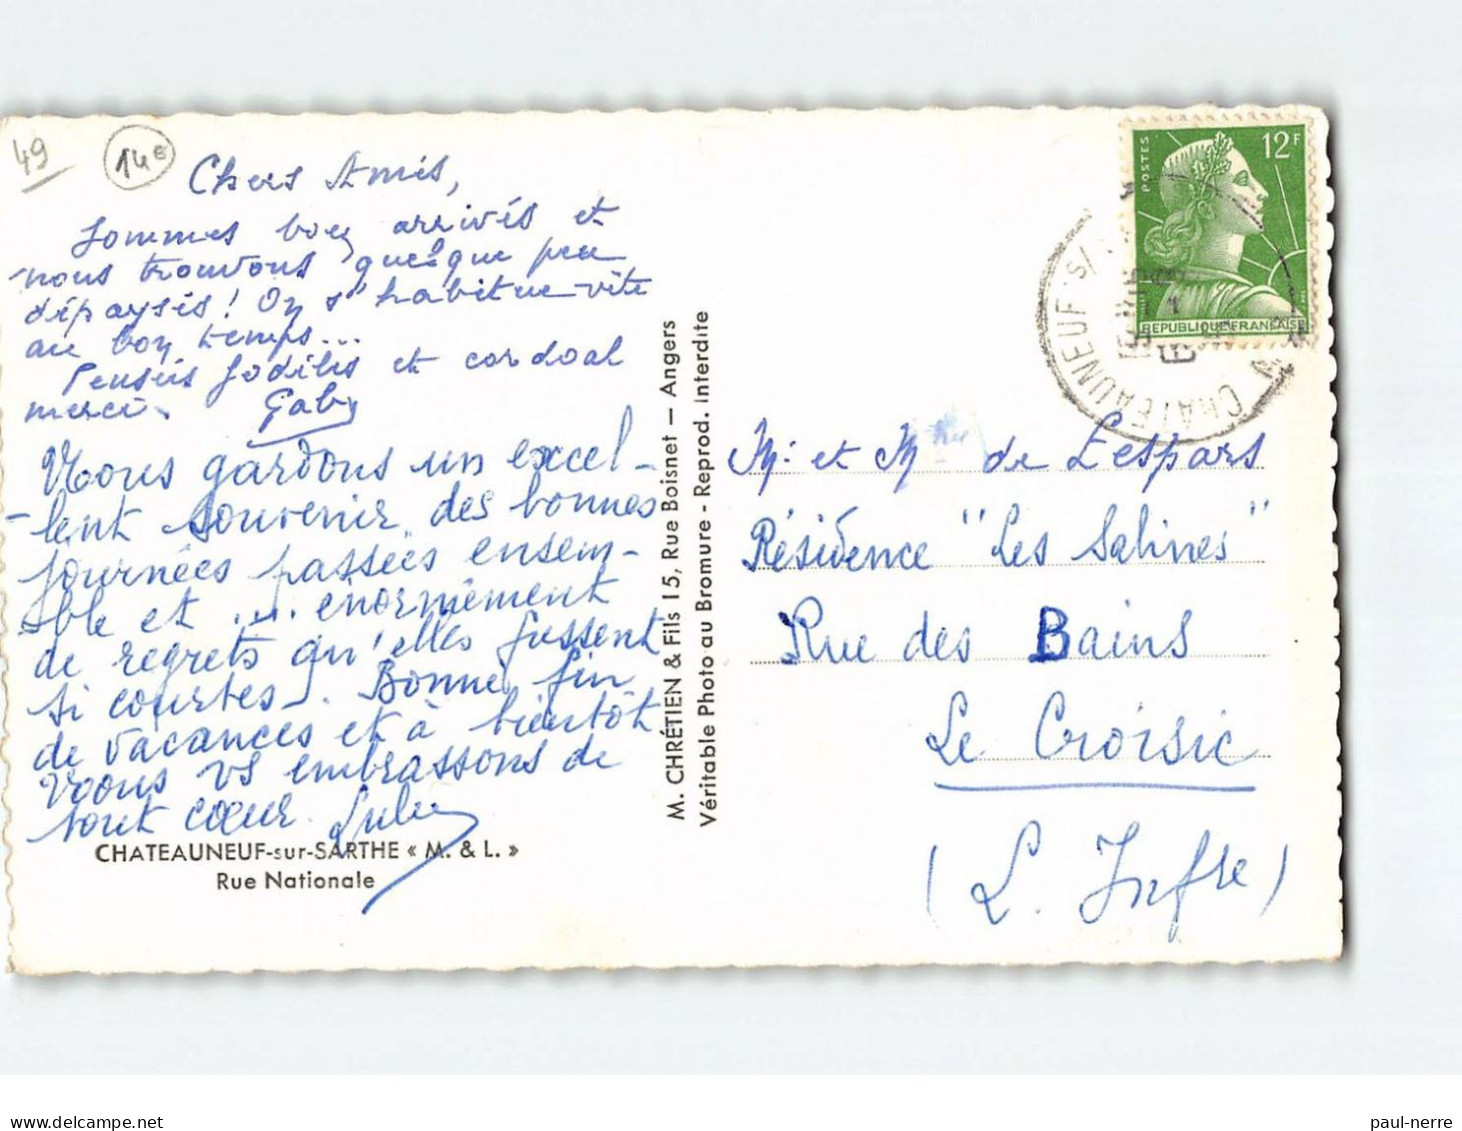 49
14€
Chers Amis,
Sommes bien arrivés et
nous trouvons quelque peu
dépaysés! On s'habitue vite
au bon temps...
Pensées fodiles et cordoal
merci. Gaby
Nous gardons un excel-
-lent souvenir des bonnes
journées passées ensem-
ble et .... énormément
de regrets qu'elles fussent
si courtes. Bonne fin
de vacances et à bientôt
Nous vs embrassons de
tout cœur.
CHATEAUNEUF-sur-SARTHE « M. & L. »
Rue Nationale
M. CHRÉTIEN & Fils 15, Rue Boisnet — Angers
Véritable Photo au Bromure - Reprod. Interdite
POSTES
12F
REPUBLIQUE FRANCAISE
CHATEAUNEUF S/
Mr et Mme de Lespars
Résidence "Les Salines"
Rue des Bains
Le Croisic
(L. Infre)
paul-nerre